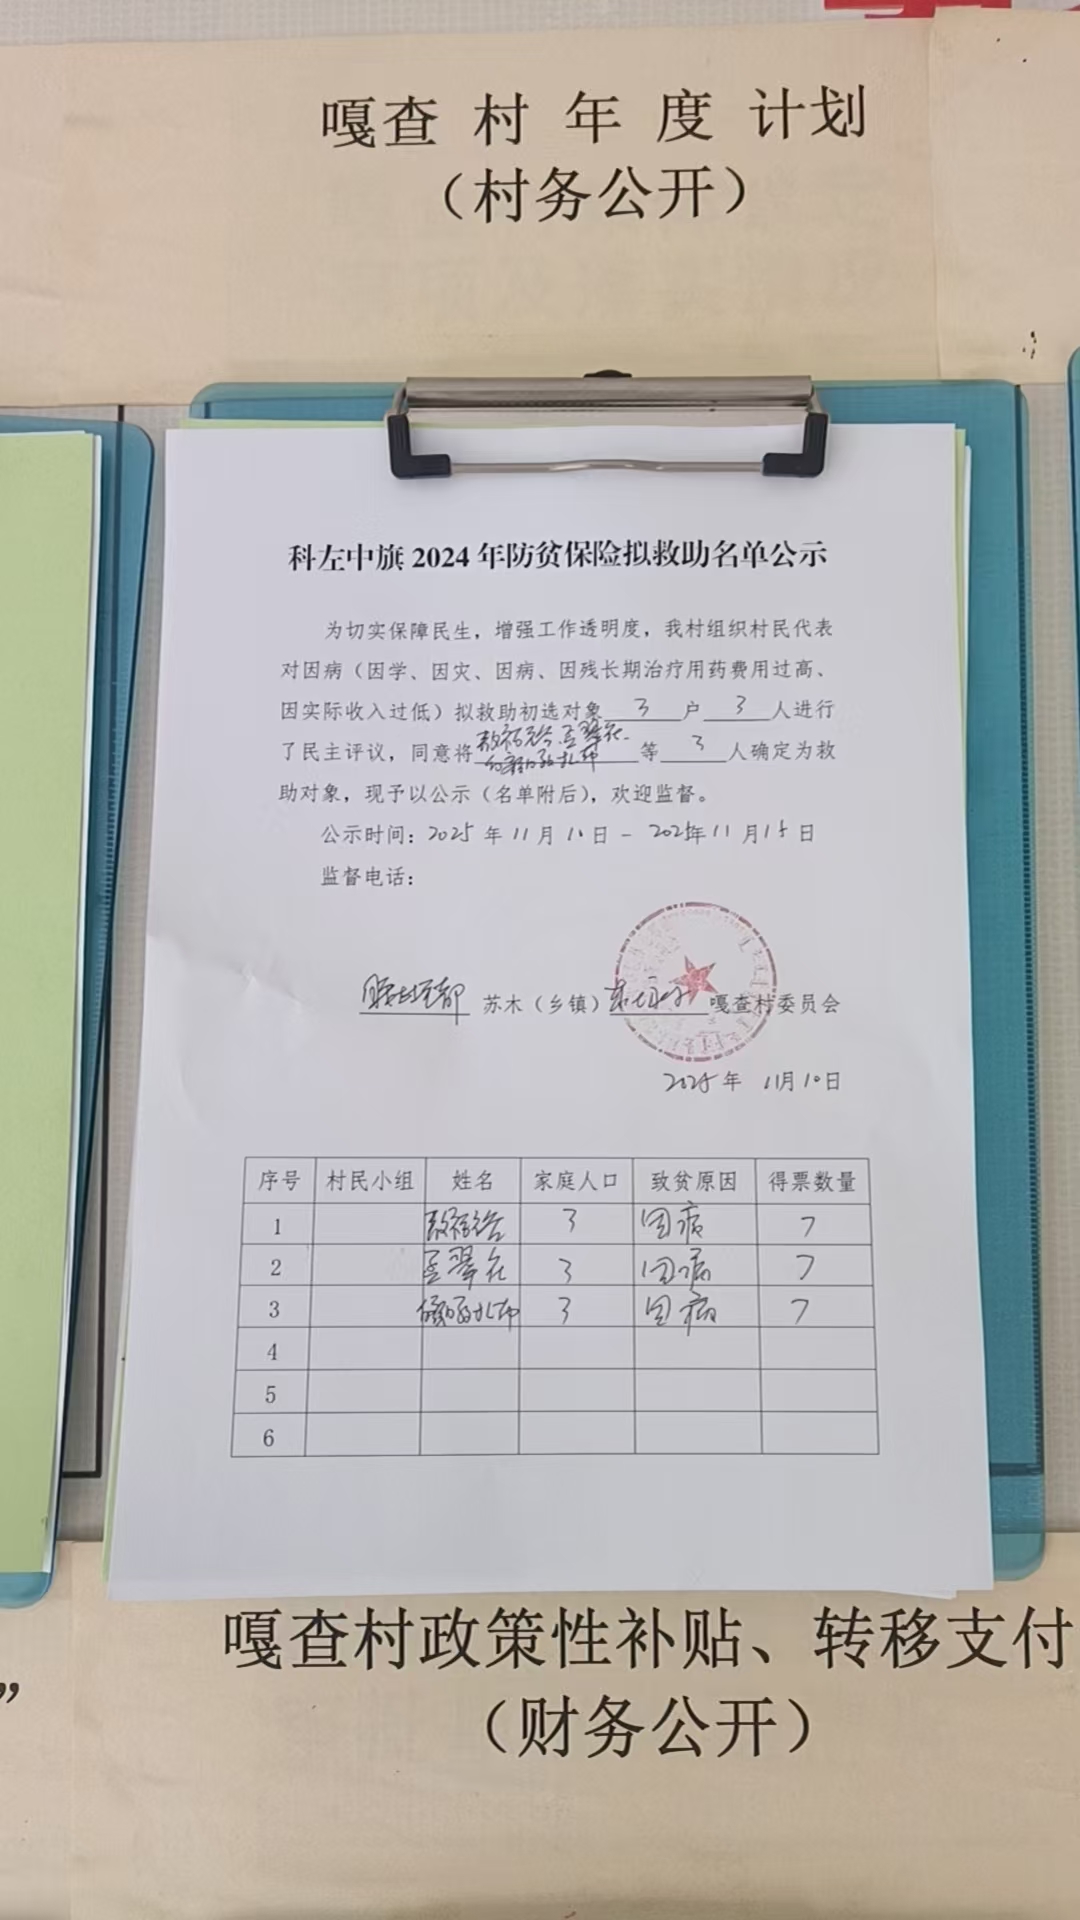 嘎查村年度计划
（村务公开）
科左中旗2024年防贫保险拟救助名单公示
为切实保障民生，增强工作透明度，我村组织村民代表
对因病（因学、因灾、因病、因残长期治疗用药费用过高、
因实际收入过低）拟救助初选对象 3 户 3 人进行
了民主评议，同意将 等 3 人确定为救
助对象，现予以公示（名单附后），欢迎监督。
公示时间：2025年11月10日－2025年11月15日
监督电话：
苏木（乡镇） 嘎查村委员会
2025年 11月10日
序号 村民小组 姓名 家庭人口 致贫原因 得票数量
1 3 因病 7
2 3 因病 7
3 3 因病 7
4
5
6
嘎查村政策性补贴、转移支付
（财务公开）
”